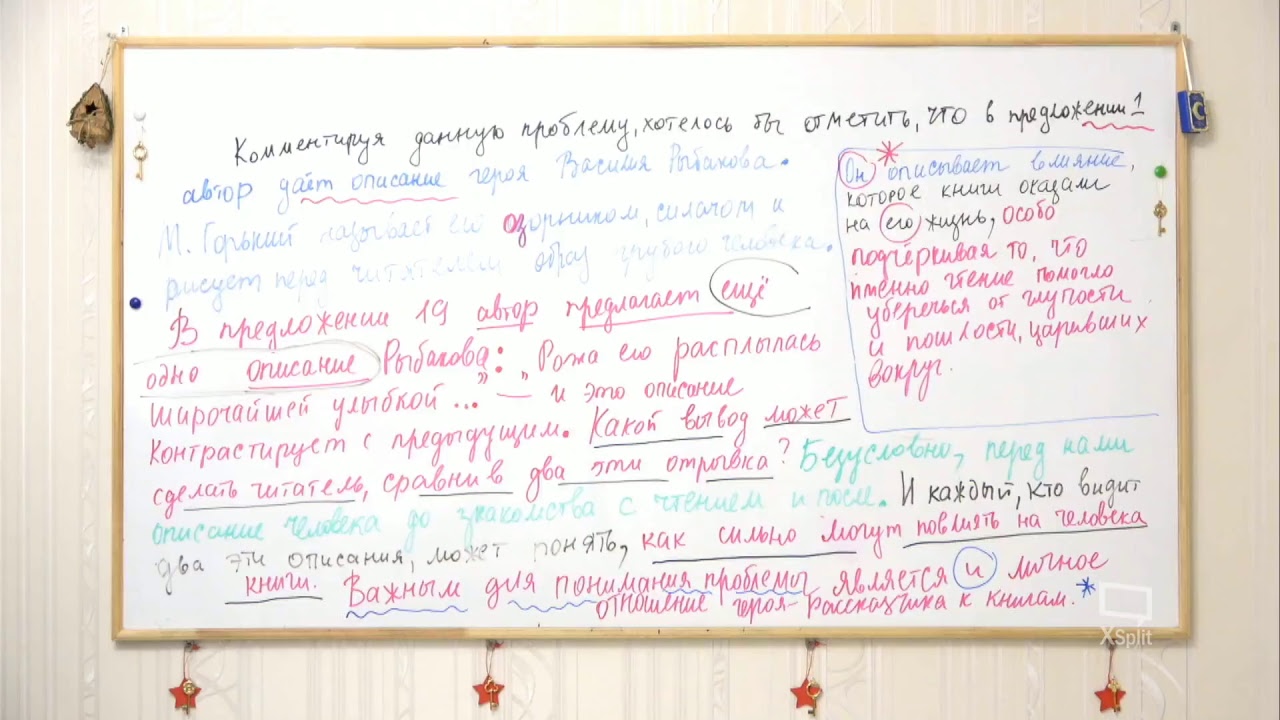 Комментируя данную проблему, хотелось бы отметить, что в предложении 1
автор даёт описание героя Василия Рыбакова.
М. Горький называет его озорником, силачом и
рисует перед читателем образ грубого человека.
В предложении 19 автор предлагает ещё
одно описание Рыбакова: „Рожа его расплылась
широчайшей улыбкой..." — и это описание
контрастирует с предыдущим. Какой вывод может
сделать читатель, сравнив два эти отрывка? Безусловно, перед нами
описание человека до знакомства с чтением и после. И каждый, кто видит
два эти описания, может понять, как сильно могут повлиять на человека
книги. Важным для понимания проблемы является и личное
отношение героя-рассказчика к книгам.*
*
Он описывает влияние,
которое книги оказали
на его жизнь, особо
подчёркивая то, что
именно чтение помогло
уберечься от глупости
и пошлости, царивших
вокруг.
XSplit